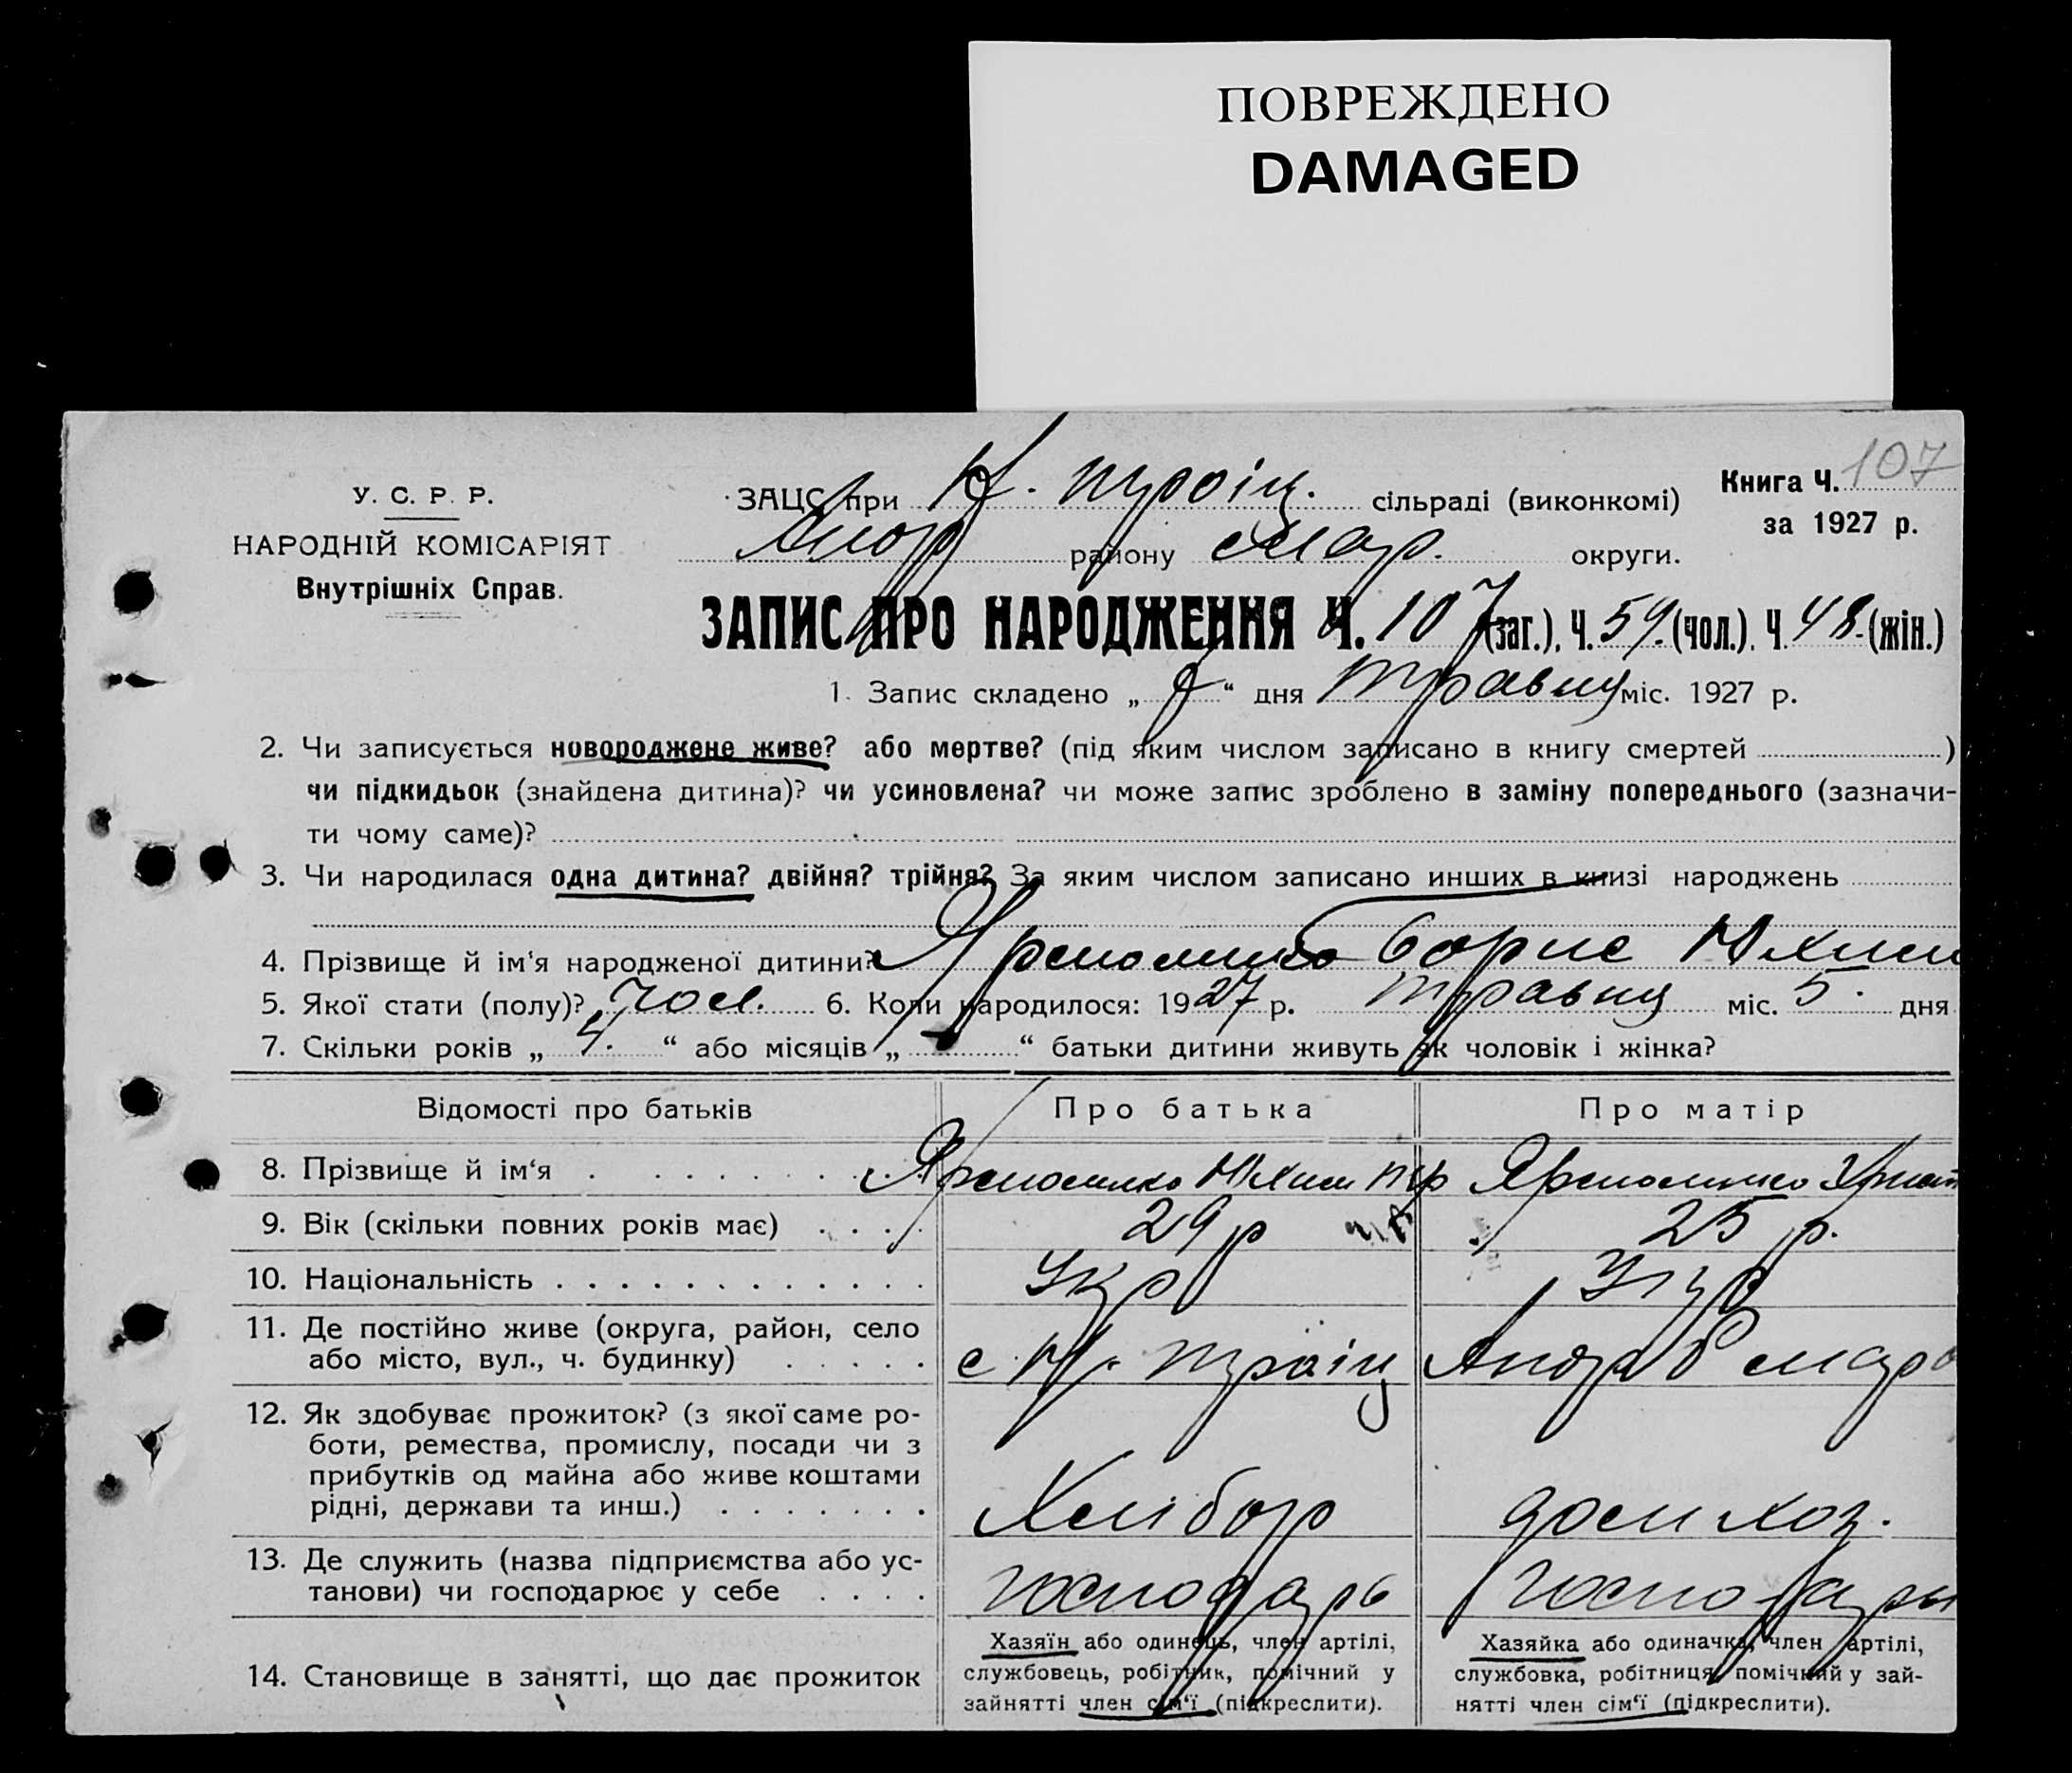 ПОВРЕЖДЕНО
DAMAGED
107
У. С. Р. Р.
НАРОДНІЙ КОМІСАРІЯТ
Внутрішніх Справ.
ЗАЦС при Н. Троіц. сільраді (виконкомі)
Книга Ч.
за 1927 р.
району Мар. округи.
ЗАПИС ПРО НАРОДЖЕННЯ Ч. 107 (заг.), Ч. 59. (чол.), Ч. 48. (жін.)
1. Запис складено „ “ дня Травня міс. 1927 р.
2. Чи записується новороджене живе? або мертве? (під яким числом записано в книгу смертей )
чи підкидьок (знайдена дитина)? чи усиновлена? чи може запис зроблено в заміну попереднього (зазначи-
ти чому саме)?
3. Чи народилася одна дитина? двійня? трійня? За яким числом записано инших в книзі народжень
4. Прізвище й ім'я народженої дитини? Борис Юхим
5. Якої стати (полу)? чол. 6. Коли народилося: 1927 р. Травня міс. 5. дня
7. Скільки років „ 4. “ або місяців „ “ батьки дитини живуть як чоловік і жінка?
Відомості про батьків
Про батька
Про матір
8. Прізвище й ім'я Юхим
9. Вік (скільки повних років має) 29 р 25 р.
10. Національність Укр Укр
11. Де постійно живе (округа, район, село
або місто, вул., ч. будинку) с. Н. Троіц
12. Як здобуває прожиток? (з якої саме ро-
боти, ремества, промислу, посади чи з
прибутків од майна або живе коштами
рідні, держави та инш.) Хлібор Дом хоз.
13. Де служить (назва підприємства або ус-
танови) чи господарює у себе Господарь Господары
14. Становище в занятті, що дає прожиток
Хазяїн або одинець, член артілі,
службовець, робітник, помічний у
зайнятті член сім'ї (підкреслити).
Хазяйка або одиначка, член артілі,
службовка, робітниця, помічний у зай-
нятті член сім'ї (підкреслити).